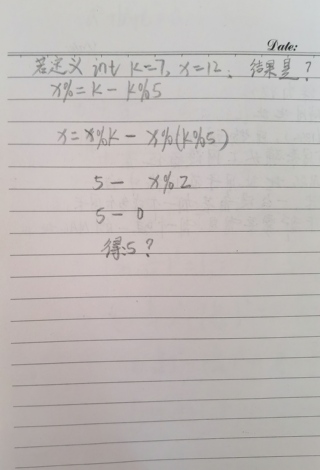 Date:
若定义 int k=7, x=12; 结果是?
x%=k-k%5
x=x%k-x%(k%5)
5- x%2
5-0
得:5?